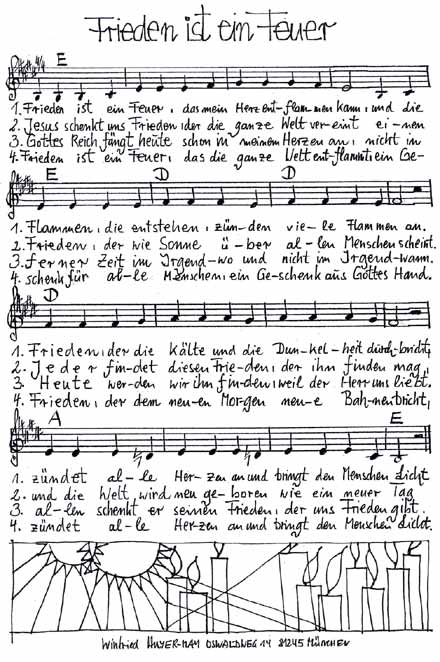 Frieden ist ein Feuer
E
1. Frieden ist ein Feuer, das mein Herz ent-flam-men kann, und die
2. Jesus schenkt uns Frieden, der die ganze Welt ver-eint ei-nen
3. Gottes Reich fängt heute schon in meinem Herzen an, nicht in
4. Frieden ist ein Feuer, das die ganze Welt ent-flammt, ein Ge-
E D D E
1. Flammen, die entstehen, zün-den vie-le Flammen an.
2. Frieden, der wie Sonne ü-ber al-len Menschen scheint.
3. ferner Zeit im Irgend-wo und nicht im Irgend-wann.
4. schenk für al-le Menschen, ein Ge-schenk aus Gottes Hand.
D
1. Frieden, der die Kälte und die Dun-kel-heit durch-bricht,
2. Jeder fin-det diesen Frie-den, der ihn finden mag,
3 Heute wer-den wir ihn fin-den, weil der Herr uns liebt.
4. Frieden, der dem neu-en Morgen neu-e Bah-nen bricht,
A E
1. zündet al-le Her-zen an und bringt den Menschen Licht
2. und die Welt wird neu ge-boren wie ein neuer Tag
3 al-len schenkt er seinen Frieden, der uns Frieden gibt.
4. zündet al-le Her-zen an und bringt den Menschen dicht.
Winfried HUYER-MAY OSWALDWEG 14 81245 MÜNCHEN